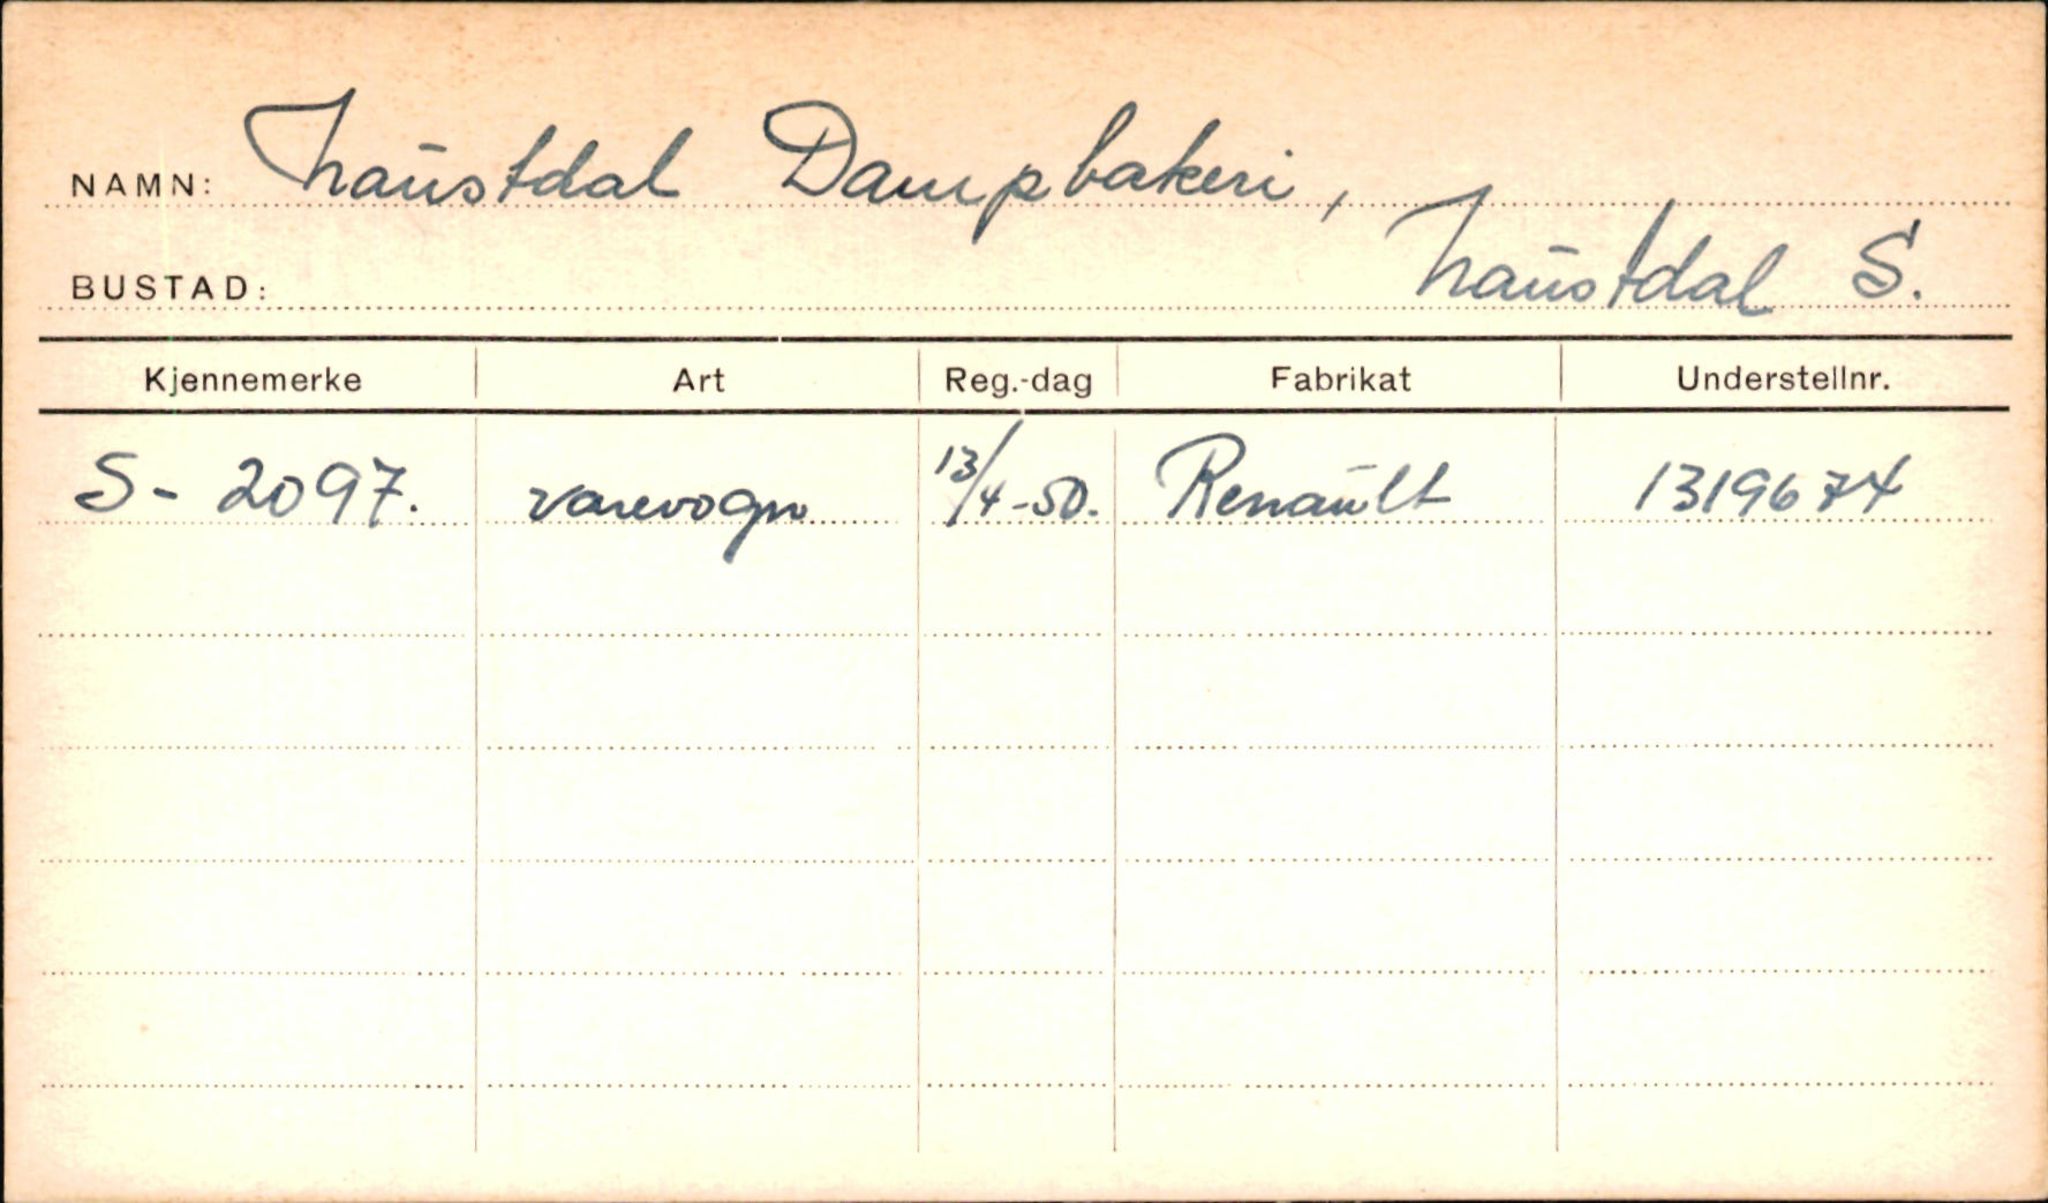 NAMN: Naustdal Dampbakeri,
BUSTAD: Naustdal S.
Kjennemerke Art Reg.-dag Fabrikat Understellnr.
S-2097. varevogn 13/4-50. Renault 1319674